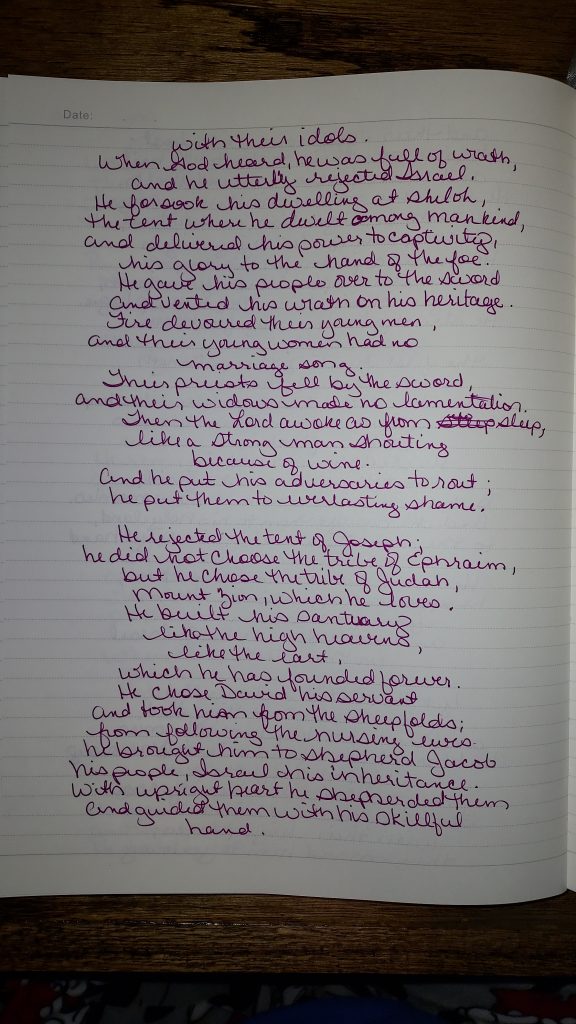 Date:
with their idols.
When God heard, he was full of wrath,
and he utterly rejected Israel.
He forsook his dwelling at Shiloh,
the tent where he dwelt among mankind,
and delivered his power to captivity,
his glory to the hand of the foe.
He gave his people over to the sword
and vented his wrath on his heritage.
Fire devoured their young men,
and their young women had no
marriage song.
Their priests fell by the sword,
and their widows made no lamentation.
Then the Lord awoke as from sleep,
like a strong man shouting
because of wine.
And he put his adversaries to rout;
he put them to everlasting shame.
He rejected the tent of Joseph;
he did not choose the tribe of Ephraim,
but he chose the tribe of Judah,
Mount Zion, which he loves.
He built his santuary
like the high heavens,
like the eart,
which he has founded forever.
He chose David his servant
and took him from the sheepfolds;
from following the nursing ewes
he brought him to shepherd Jacob
his people, Israel his inheritance.
With upright heart he shepherded them
and guided them with his skillful
hand.